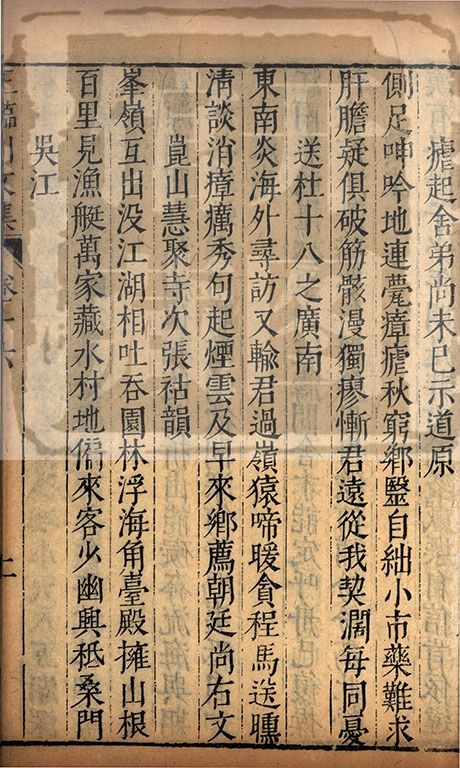 瘧起舍弟尚未已示道原
側足呻吟地連甍瘴瘧秋窮鄉毉自絀小市藥難求
肝膽疑俱破筋骸漫獨瘳慚君遠從我契濶每同憂
送杜十八之廣南
東南炎海外尋訪又輸君過嶺猿啼暖貪程馬送曛
清談消瘴癘秀句起煙雲及早來鄉薦朝廷尚右文
崑山慧聚寺次張祜韻
峯嶺互出没江湖相吐吞園林浮海角臺殿擁山根
百里見漁艇萬家藏水村地偏來客少幽興秪桑門
吳江
王臨川文集